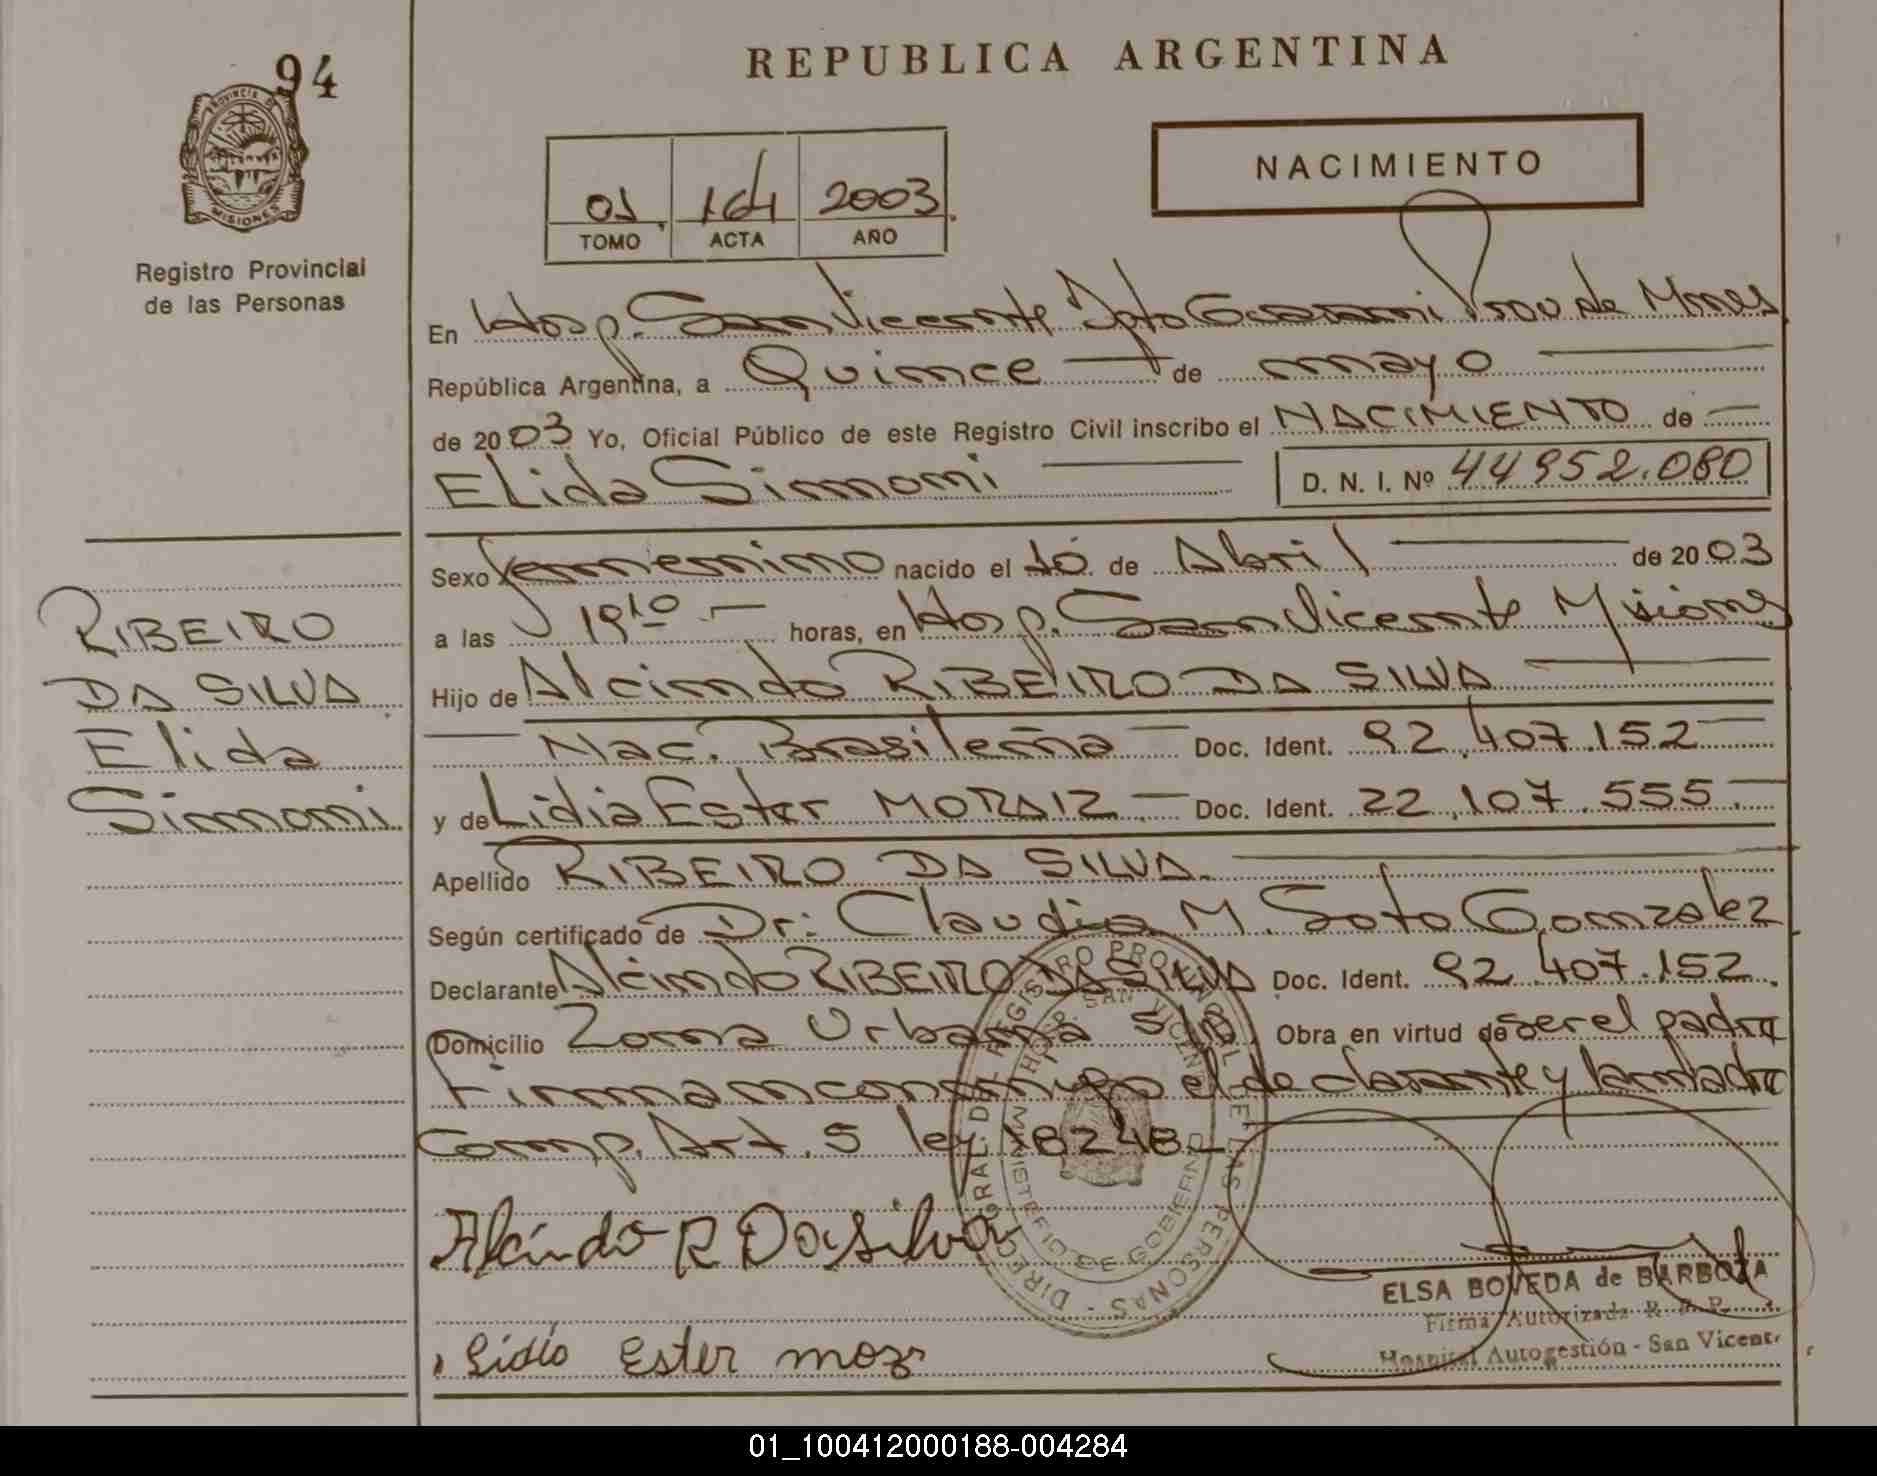 94
REPUBLICA ARGENTINA
PROVINCIA DE
MISIONES
Registro Provincial
de las Personas
01 164 2003
TOMO ACTA AÑO
NACIMIENTO
En Hosp. San Vicente Dpto Guarani Prov de Mnes
República Argentina, a Quince de mayo
de 2003 Yo, Oficial Público de este Registro Civil inscribo el NACIMIENTO de
Elida Simoni D. N. I. Nº 44952.080
Sexo femenino nacido el 10 de Abril de 2003
a las 19 10 horas, en Hosp. San Vicente Misiones
Hijo de Alcindo RIBEIRO DA SILVA
Nac. Brasileña Doc. Ident. 92.407.152
y de Lidia Ester MORAIZ Doc. Ident. 22.107.555.
Apellido RIBEIRO DA SILVA.
Según certificado de Dr: Claudio M. Soto Gonzalez
Declarante Alcindo RIBEIRO DA SILVA Doc. Ident. 92.407.152.
Domicilio Zona Urbana S/N Obra en virtud de ser el padre
Firman conmigo el declarante y la madre
Comp. Art. 5 ley 18248
RIBEIRO
DA SILVA
Elida
Simoni
DIRECC. GRAL. DEL REGISTRO PROVINCIAL DE LAS PERSONAS
HOSP. SAN VICENTE
MINISTERIO DE GOBIERNO
Alcindo R Da silva
Lidia Ester
ELSA BOVEDA de BARBOZA
Firma Autorizada R. P. P.
Hospital Autogestión - San Vicente
01_100412000188-004284